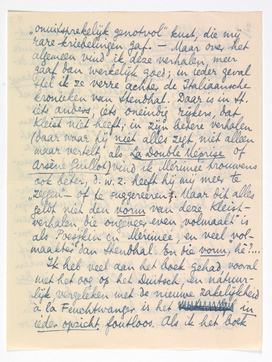 onuitsprekelijk genotvol" kust, die mij
rare kriebelingen gaf. — Maar over het
algemeen vind ik deze verhalen, meer
gaaf dan werkelijk goed; in ieder geval
stel ik ze verre achter de Italiaansche
kronieken van Stendhal. Daar is in St.
iets anders, iets oneindig rijkers, dat
Kleist niet heeft; in zijn betere verhalen
(daar waar hij niet alles zegt niet alleen
maar vertelt, als La Double Méprise of
Arsène Guillot) vind ik Mérimée trouwens
ook beter, d.w.z. heeft hij mij meer te
"zeggen" of te suggereeren. Maar dit alles
geldt niet den vorm van deze Kleist-
verhalen, die ongeveer even volmaakt is
als Poesjkin en Mérimée, en veel "vol-
maakter" dan Stendhal. En die vorm, hè?...
Ik heb veel aan het boek gehad, vooral
met het oog op het Duitsch, en natuur-
lijk vergeleken met de nieuwe zakelijkheid
à la Feuchtwanger is het in
ieder opzicht foutloos. Als ik het boek